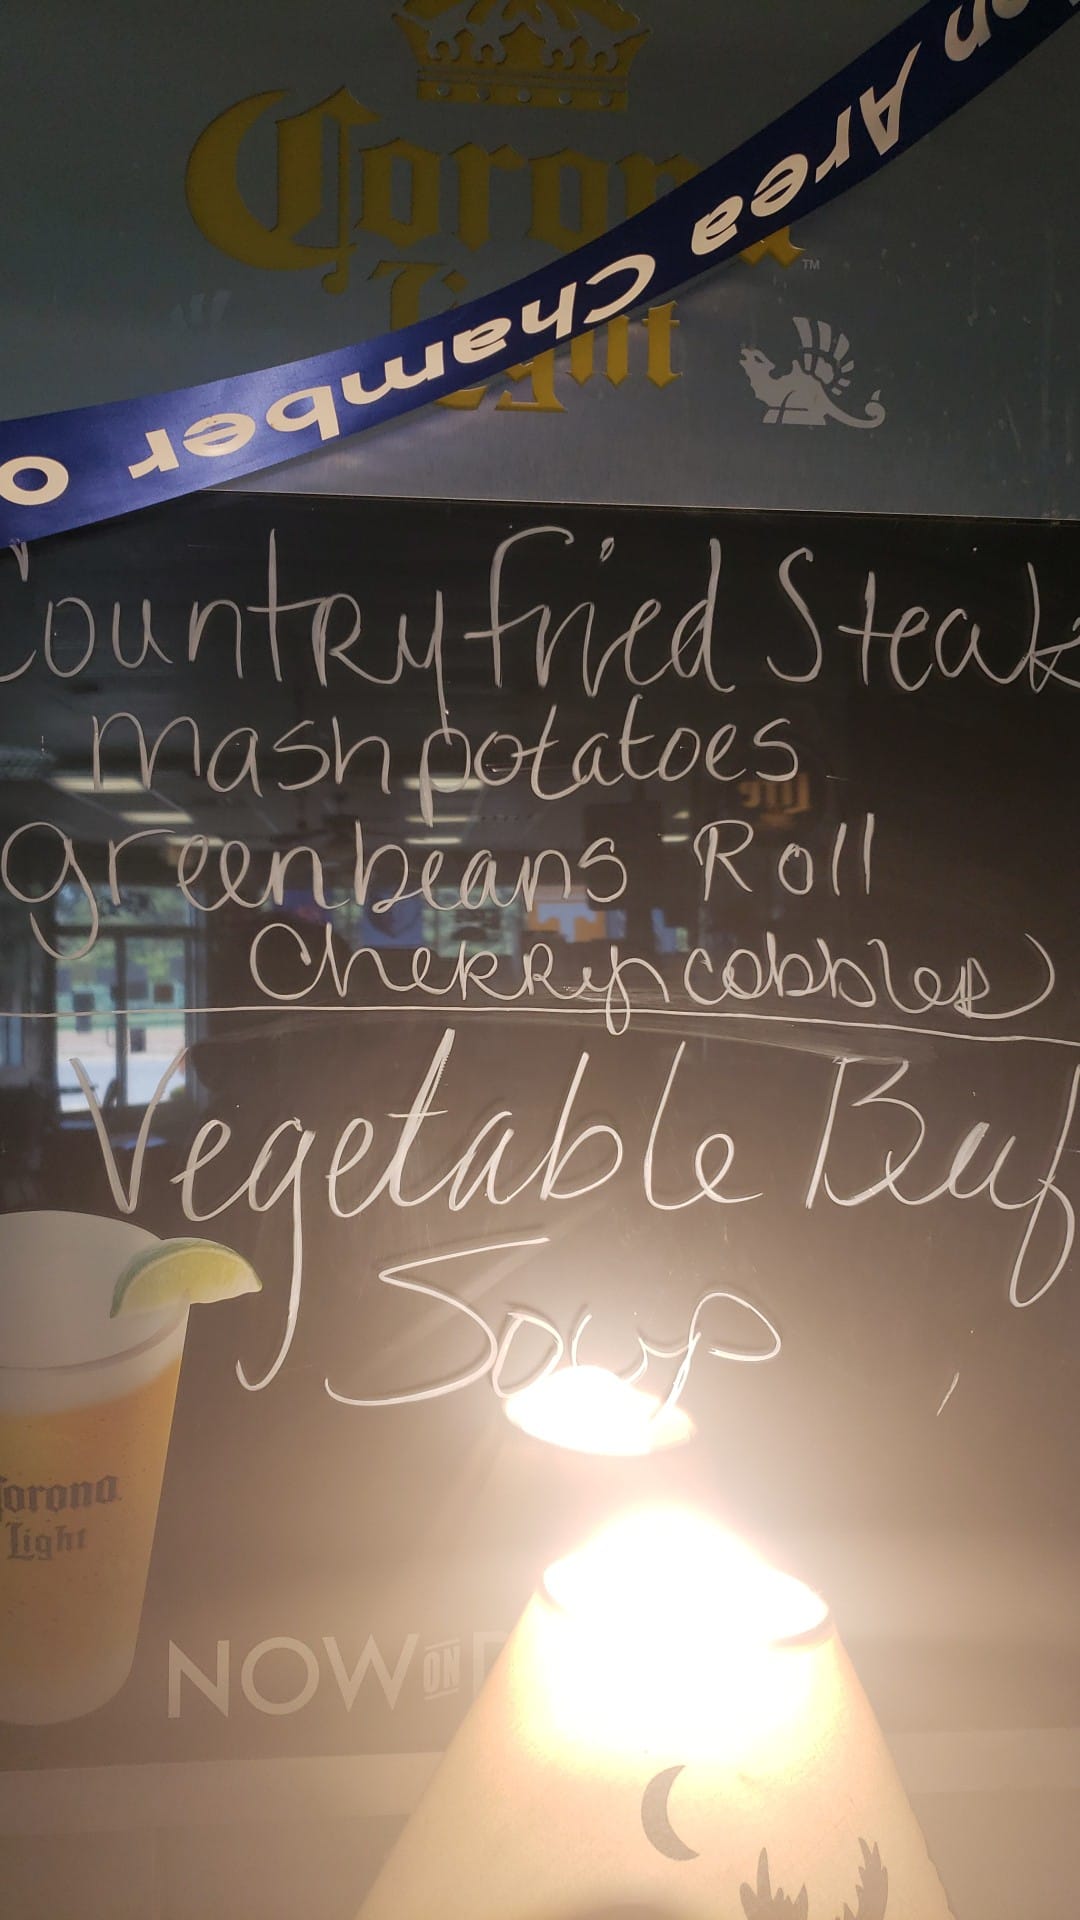 Corona
Light
TM
on Area Chamber o
Country fried Steak
Mash potatoes
greenbeans Roll
Cherry cobbler
Vegetable Beef
Soup
Corona
Light
NOW ON